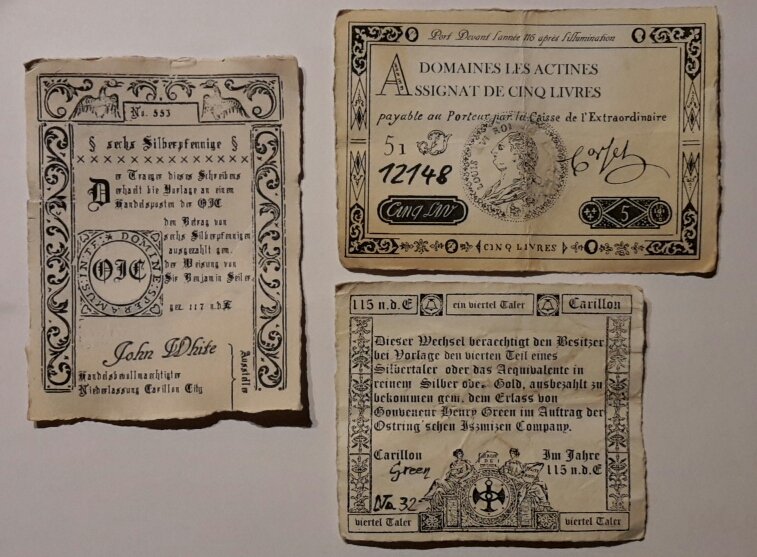 No. 553
§ sechs Silberpfennige §
Der Traeger dieses Schreibens
erhaelt bie Vorlage an einem
Handelsposten der OIC
den Betrag von
sechs Silberpfennigen
ausgezahlt gem.
der Weisung von
Sir Benjamin Seiler
gez. 117 n.d.E
INTF. * DOMINE SPERAMUS
OIC
John White
Handelsbevollmachtigter
Niederlassung Carillon City
Aussteller
Port Devant l'année 116 après l'illumination
DOMAINES LES ACTINES
ASSIGNAT DE CINQ LIVRES
payable au Porteur par la Caisse de l'Extraordinaire
51
12148
LOUIS XVI ROI
Cinq LIV
5
CINQ LIVRES
115 n.d.E
ein viertel Taler
Carillon
Dieser Wechsel beraechtigt den Besitzer
bei Vorlage den vierten Teil eines
Silbertaler oder das Aequivalente in
reinem Silber oder Gold, ausbezahlt zu
bekommen gem. dem Erlass von
Gouveneur Henry Green im Auftrag der
Ostring'schen Iszmizen Company.
Carillon Im Jahre
Green 115 n.d.E
No 32
viertel Taler viertel Taler